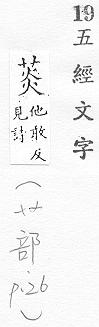 19
五經文字
菼
他敢反
見詩
(艹部
p.26)